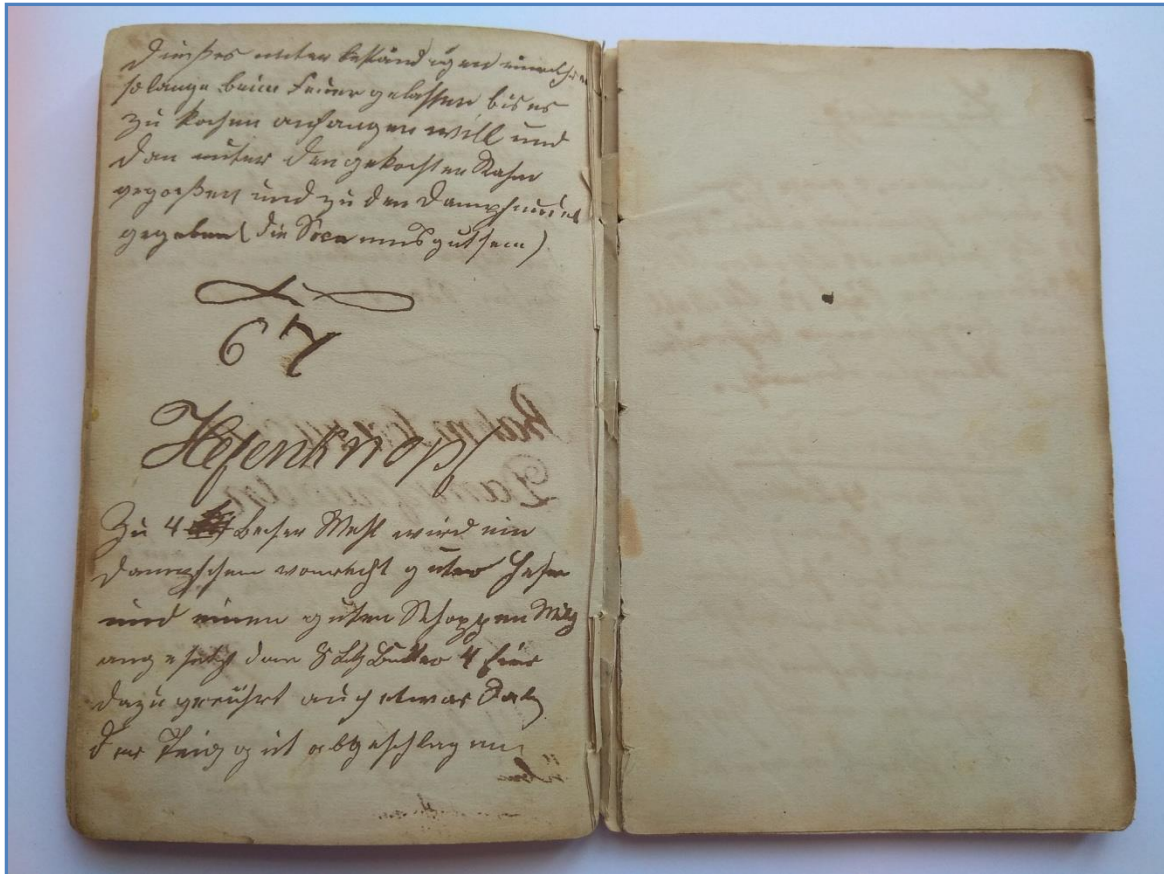 dieses unter beständigen umrühren
solange beim Feuer gelassen bis es
zu kochen anfangen will und
dan unter den gekochten Rahm
gegoßen und zu den Dampfnudel
gegeben (die Soca mus gut sein)
67
Hefenknopf
Zu 4 becher Mehl wird ein
Dampfchen von recht guter Hefen
und einen guten Schoppen Milg
angesetzt dan 8 Lth Butter 4 Eier
dazu gerührt auch etwas Salz
der Teig gut abgeschlagen